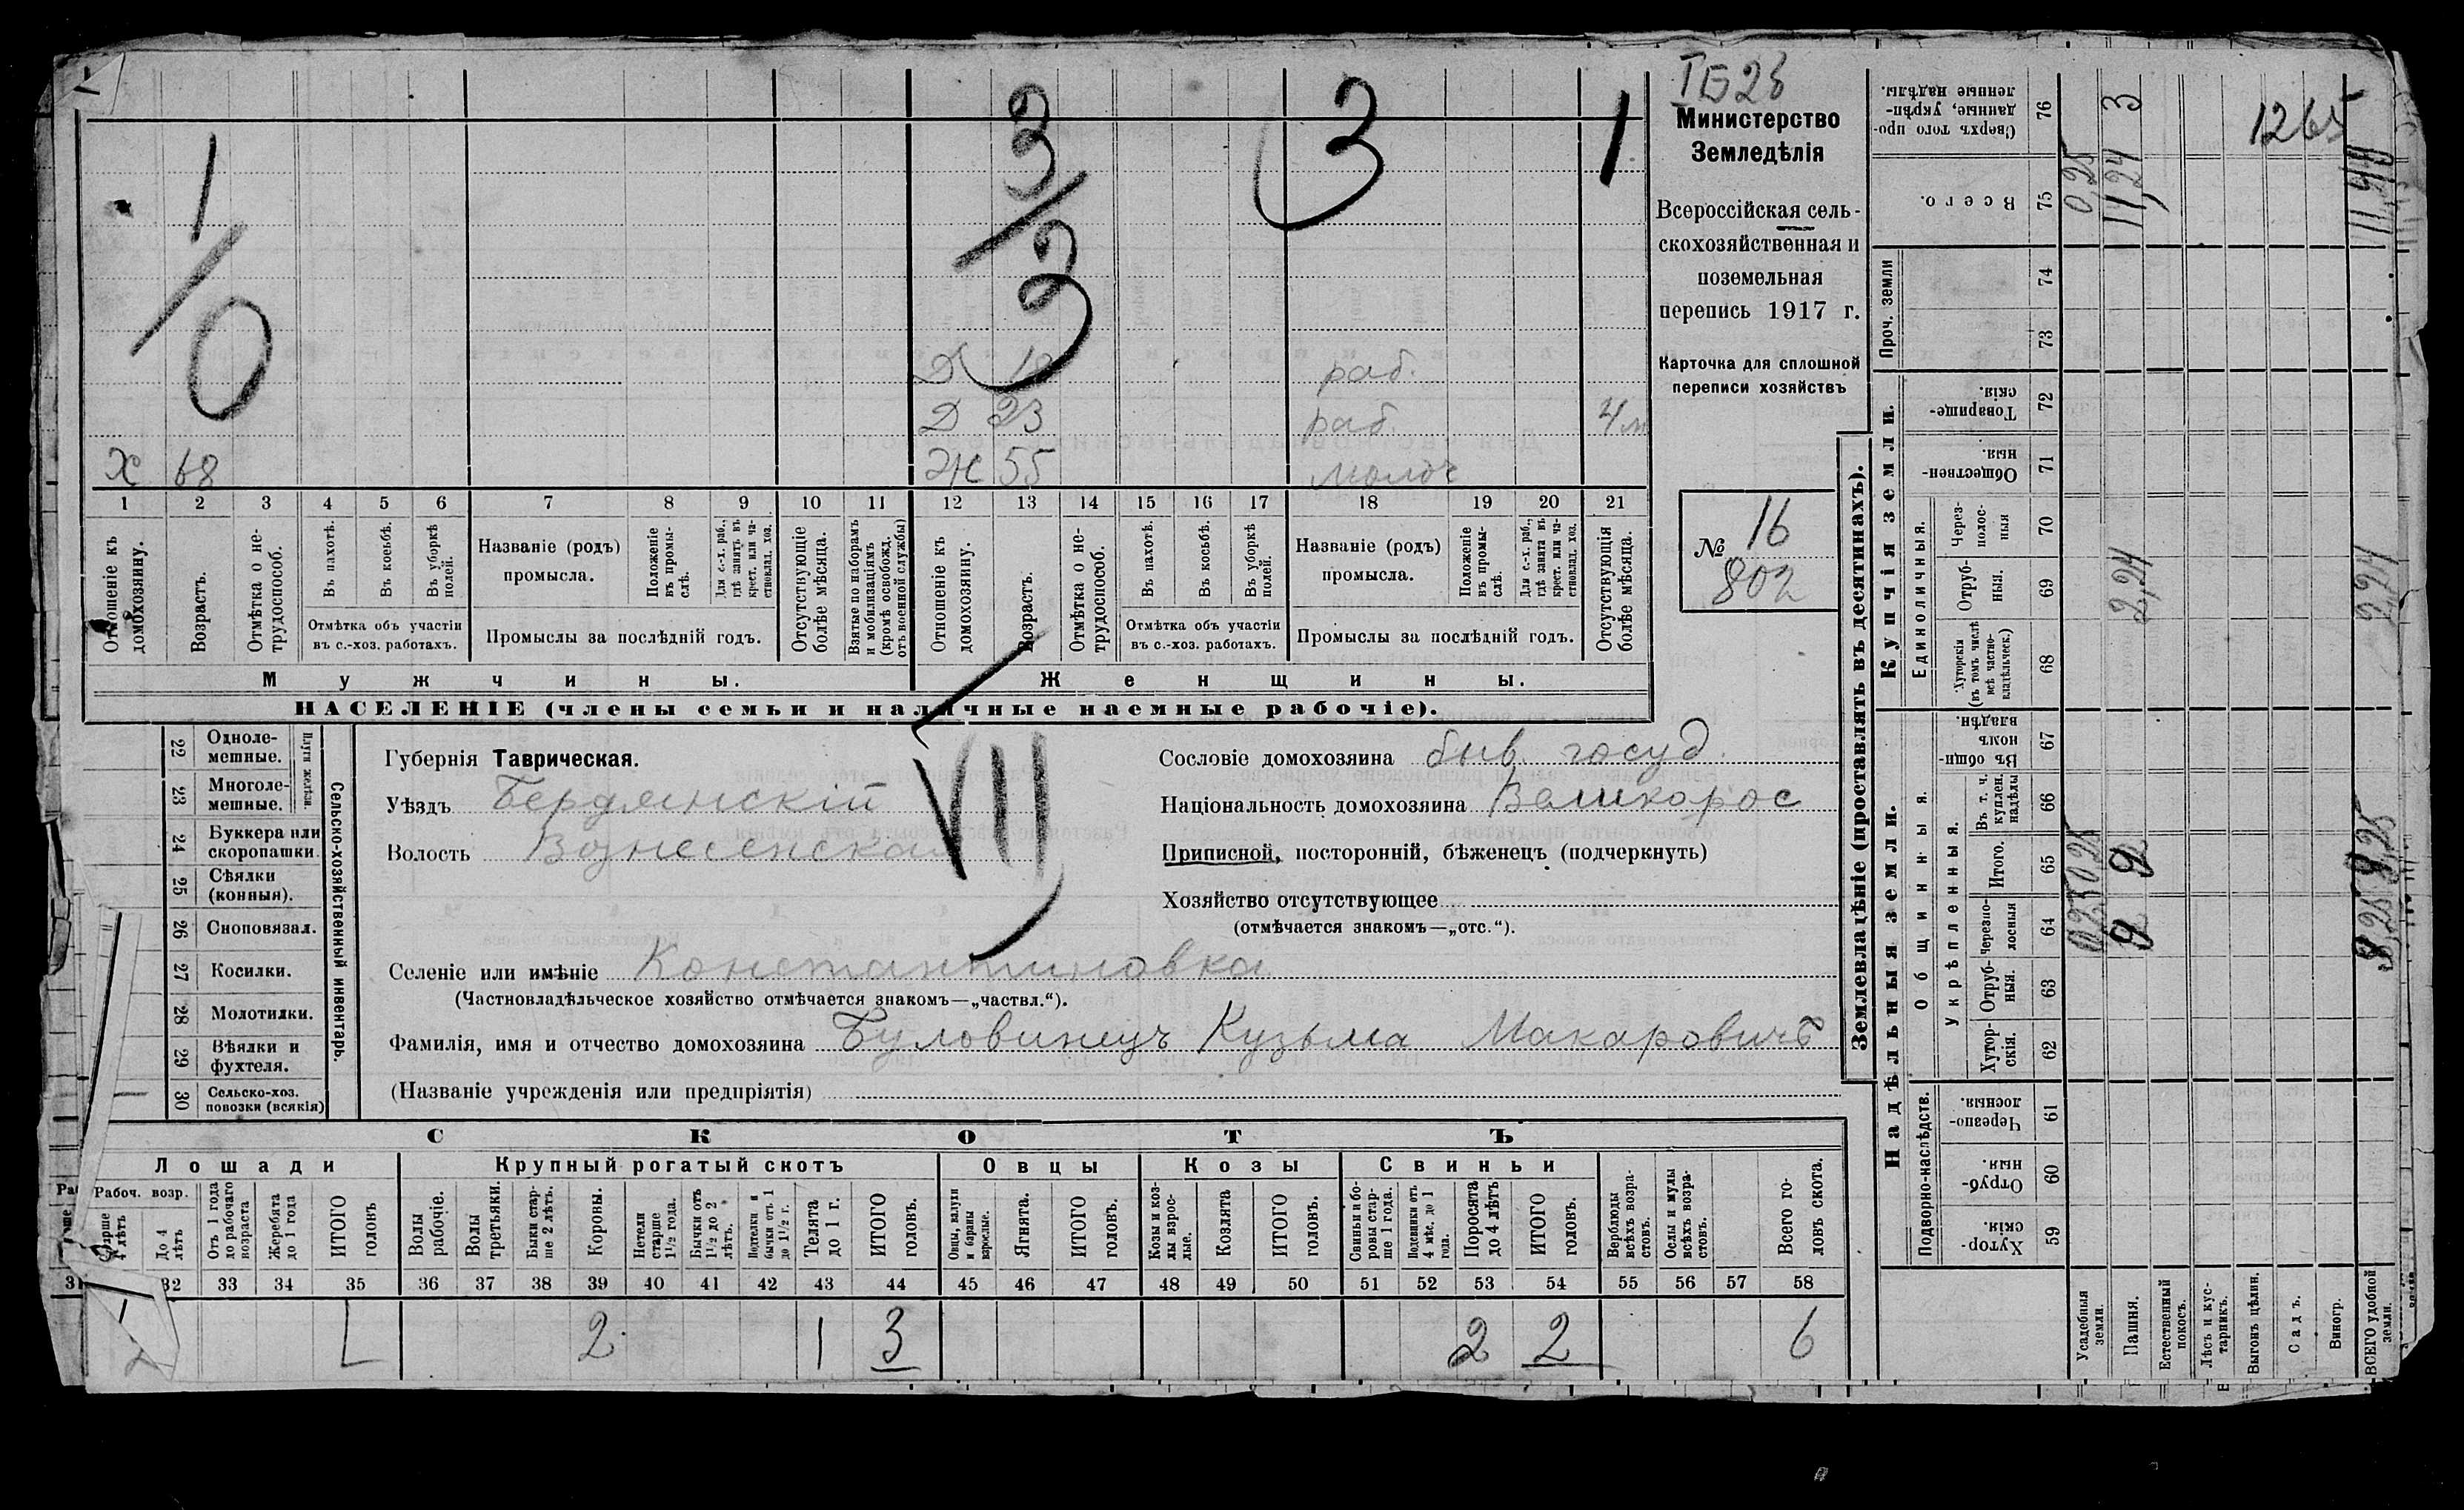 ТБ26
Министерство
Земледѣлія
Всероссійская сель-
скохозяйственная и
поземельная
перепись 1917 г.
Карточка для сплошной
переписи хозяйствъ
№ 16
802
1/0
3/3
3
1
Д 18 раб.
Д 23 раб. 4 м
Х 68 Ж 55 молоч
1 2 3 4 5 6 7 8 9 10 11 12 13 14 15 16 17 18 19 20 21
Отношеніе къ домохозяину.
Возрастъ.
Отмѣтка о не-трудоспособ.
Въ пахотѣ.
Въ косьбѣ.
Въ уборкѣ полей.
Отмѣтка объ участіи въ с.-хоз. работахъ.
Названіе (родъ) промысла.
Положеніе въ промы-слѣ.
Для с.-х. раб., гдѣ занятъ въ крест. или ча-стновлад. хоз.
Промыслы за послѣдній годъ.
Отсутствующіе болѣе мѣсяца.
Взятые по наборамъ и мобилизаціямъ (кромѣ освобожд. отъ военной службы)
Отношеніе къ домохозяину.
Возрастъ.
Отмѣтка о не-трудоспособ.
Въ пахотѣ.
Въ косьбѣ.
Въ уборкѣ полей.
Отмѣтка объ участіи въ с.-хоз. работахъ.
Названіе (родъ) промысла.
Положеніе въ промы-слѣ.
Для с.-х. раб., гдѣ занята въ крест. или ча-стновлад. хоз.
Промыслы за послѣдній годъ.
Отсутствующія болѣе мѣсяца.
Мужчины. Женщины.
НАСЕЛЕНІЕ (члены семьи и наличные наемные рабочіе).
Сельско-хозяйственный инвентарь.
Плуги желѣзн.
22 Одноле-мешные.
23 Многоле-мешные.
24 Буккера или скоропашки
25 Сѣялки (конныя).
26 Сноповязал.
27 Косилки.
28 Молотилки.
29 Вѣялки и фухтеля.
30 Сельско-хоз. повозки (всякія)
Губернія Таврическая.
Уѣздъ Бердянскій
Волость Вознесенская
VII
Сословіе домохозяина быв. госуд.
Національность домохозяина Великорос
Приписной, посторонній, бѣженецъ (подчеркнуть)
Хозяйство отсутствующее
(отмѣчается знакомъ—„отс.“).
Селеніе или имѣніе Константиновка
(Частновладѣльческое хозяйство отмѣчается знакомъ—„частвл.“).
Фамилія, имя и отчество домохозяина Буловинецъ Кузьма Макаровичъ
(Названіе учрежденія или предпріятія)
СКОТЪ
Лошади Крупный рогатый скотъ Овцы Козы Свиньи
Рабоч. возр.
Старше 4 лѣтъ
До 4 лѣтъ
Отъ 1 года до рабочаго возраста
Жеребята до 1 года
ИТОГО головъ
Волы рабочіе.
Волы третьяки.
Быки стар-ше 2 лѣтъ.
Коровы.
Нетели старше 1½ года.
Бычки отъ 1½ до 2 лѣтъ.
Подтелки и бычки отъ 1 до 1½ г.
Телята до 1 г.
ИТОГО головъ.
Овцы, валухи и бараны взрослые.
Ягнята.
ИТОГО головъ.
Козы и коз-лы взрос-лые.
Козлята
ИТОГО головъ.
Свиньи и бо-ровы стар-ше 1 года.
Подсвинки отъ 4 мѣс. до 1 года.
Поросята до 4 лѣтъ
ИТОГО головъ.
Верблюды всѣхъ возра-стовъ.
Ослы и мулы всѣхъ возра-стовъ.
Всего го-ловъ скота.
31 32 33 34 35 36 37 38 39 40 41 42 43 44 45 46 47 48 49 50 51 52 53 54 55 56 57 58
2 1 3 2 2 6
Землевладѣніе (проставлять въ десятинахъ).
Надѣльныя земли. Купчія земли. Проч. земли
Подворно-наслѣдств.
Общинныя.
Укрѣпленныя.
Единоличныя.
59 Хутор-скія.
60 Отруб-ныя.
61 Черезпо-лосныя.
62 Хутор-скія.
63 Отруб-ныя.
64 Черезпо-лосныя
65 Итого.
66 Въ т. ч. куплен. надѣлы
67 Въ общи-номъ владѣн.
68 Хуторскія (въ томъ числѣ всѣ частно-владѣльческ.)
69 Отруб-ныя.
70 Через-полос-ныя
71 Обществен-ныя.
72 Товарище-скія.
73
74
75 Всего.
76 Сверхъ того про-данные, укрѣп-ленные надѣлы.
Усадебныя земли. 0,25 0,25 0,25
Пашня. 9 9 2,24 11,24 3
Естественный покосъ.
Лѣсъ и кус-тарникъ.
Выгонъ цѣлин.
Садъ.
Виногр.
ВСЕГО удобной земли. 9,25 9,25 2,24 11,49
1265